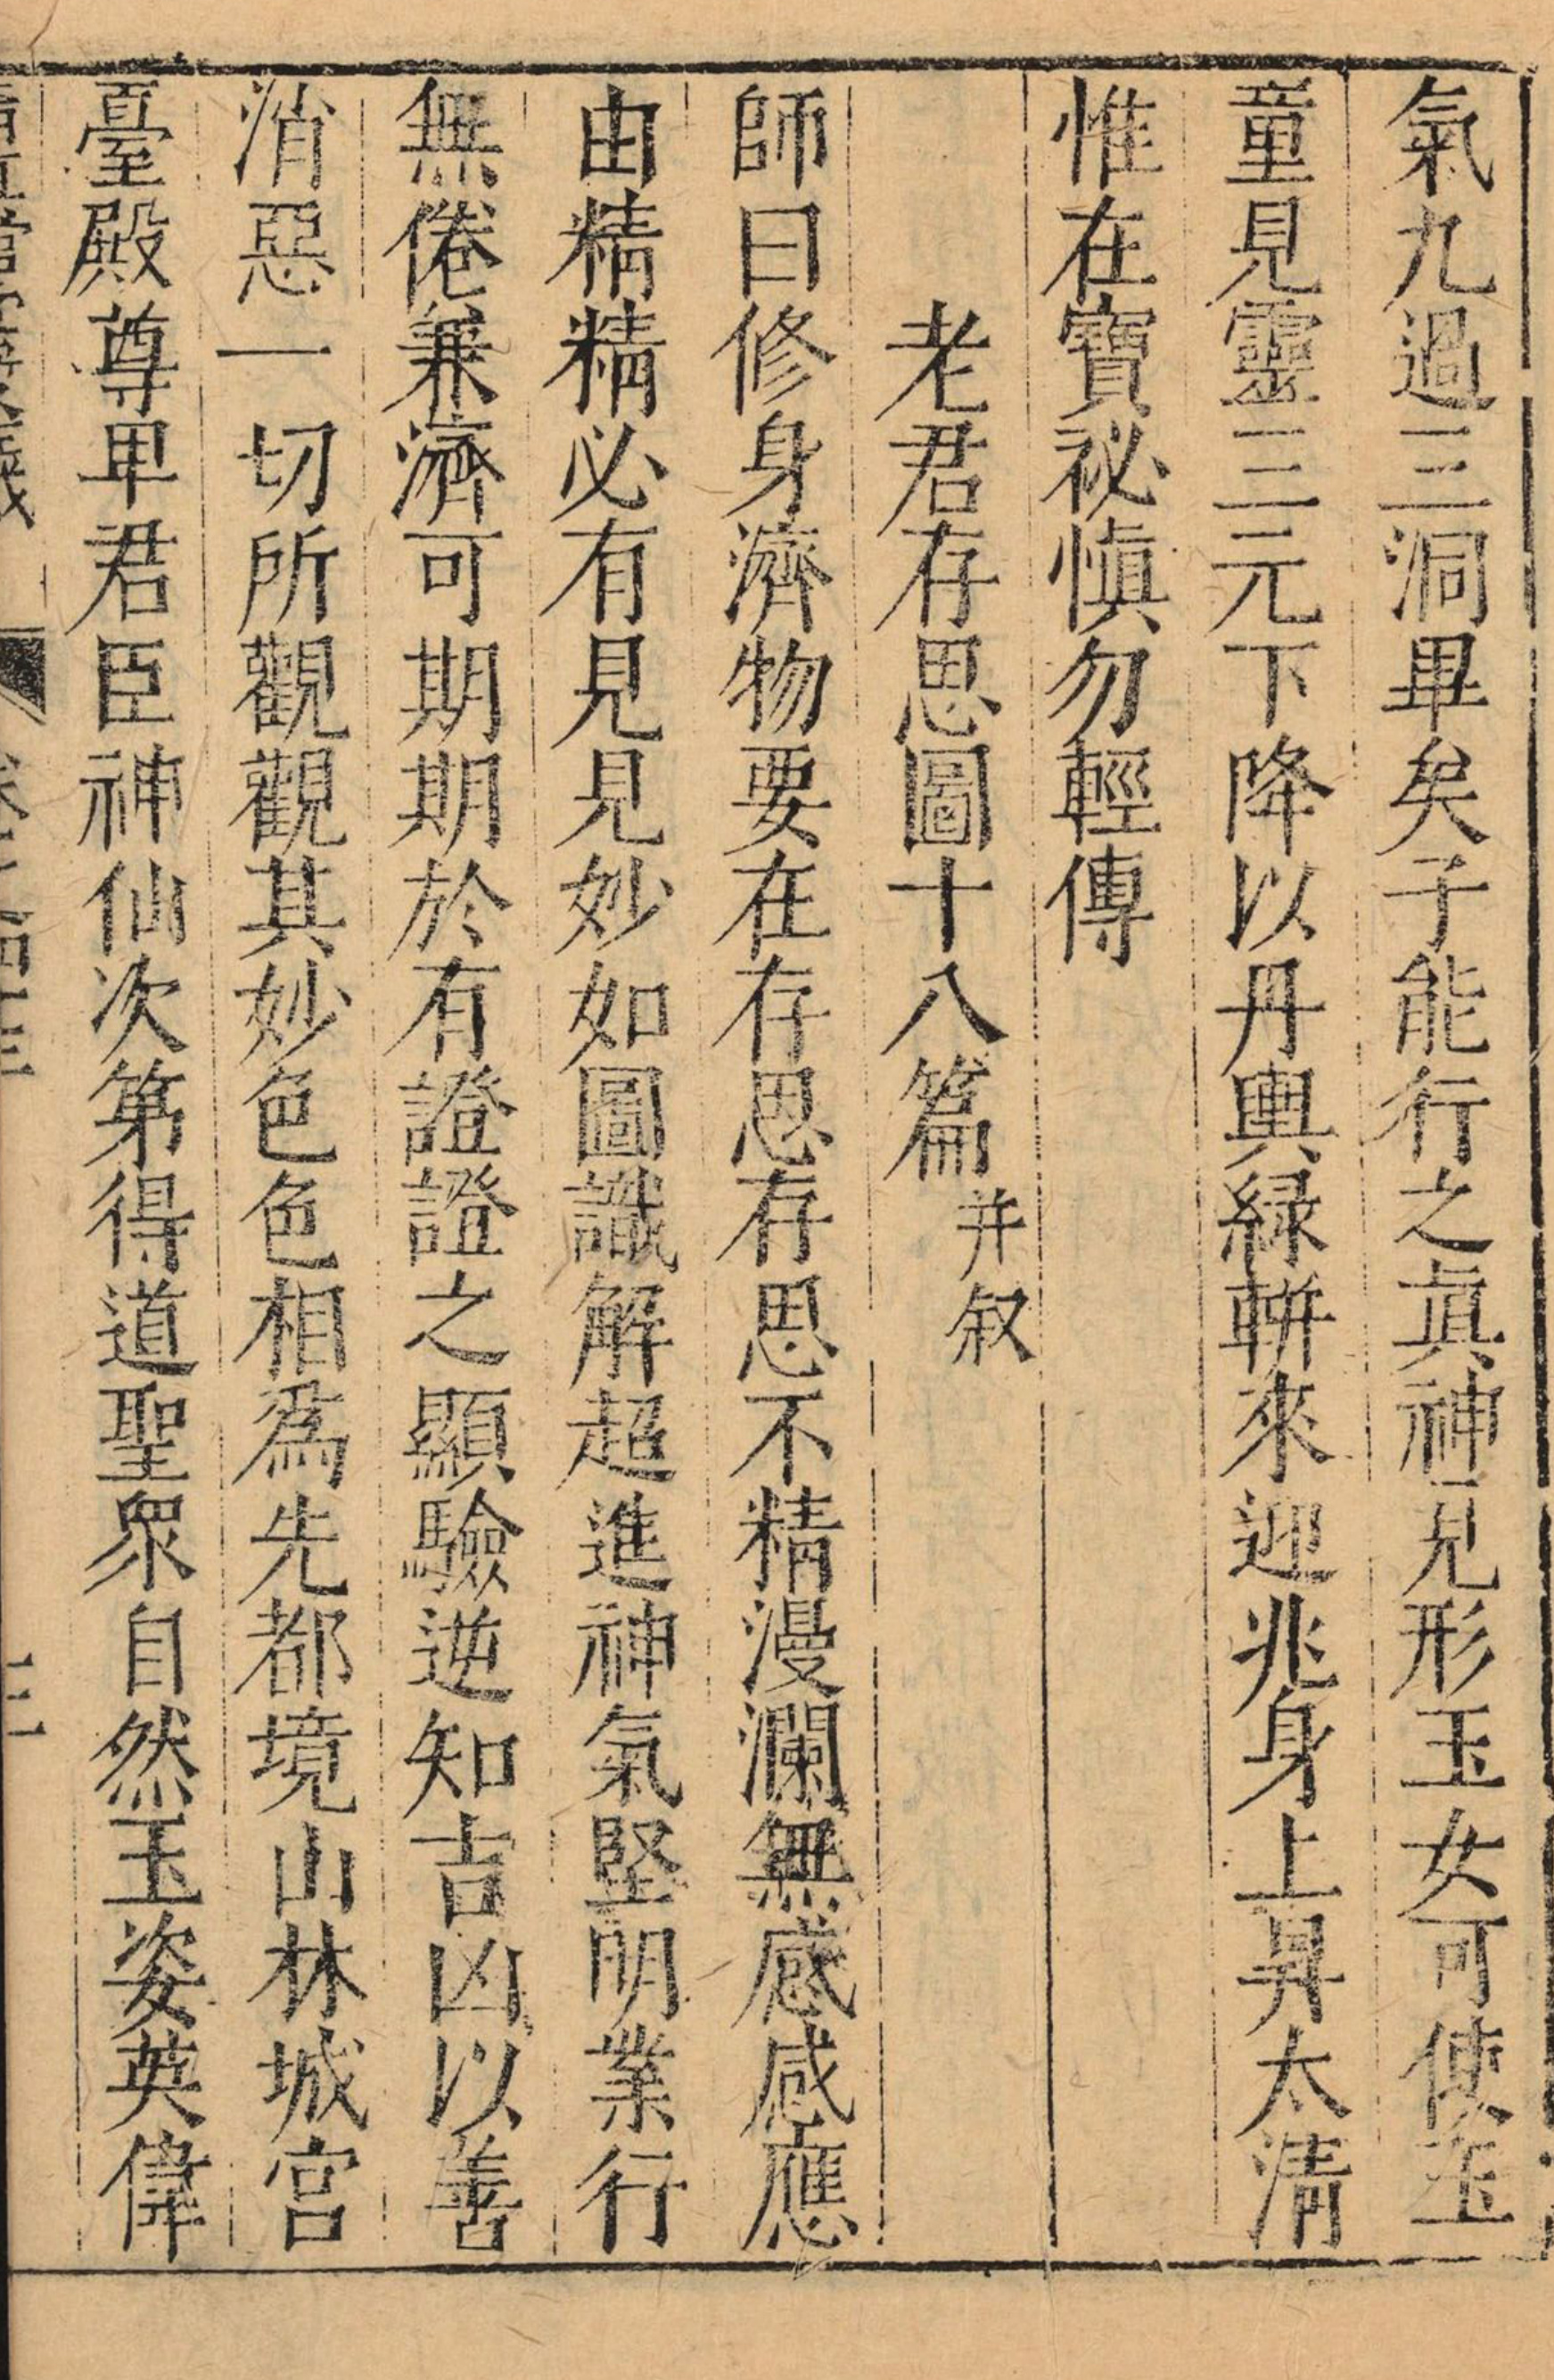 氣九過三洞畢矣子能行之眞神見形玉女可使玉
童見靈三元下降以丹輿緑軿來迎兆身上昇太淸
惟在寶祕愼勿輕傳
老君存思圖十八篇并叙
師曰修身濟物要在存思存思不精漫瀾無感感應
由精精必有見見妙如圖識解超進神氣堅明業行
無倦兼濟可期期於有證證之顯驗逆知吉凶以善
消惡一切所觀觀其妙色色相爲先都境山林城宮
臺殿尊卑君臣神仙次第得道聖眾自然玉姿英偉